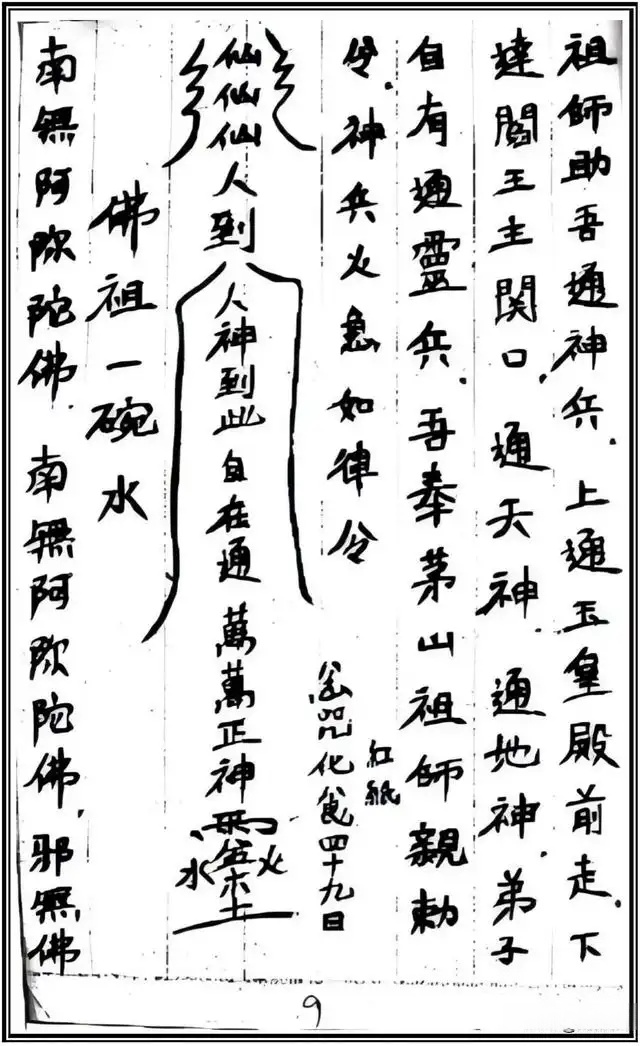 祖師助吾通神兵.上通玉皇殿前走.下
達閻王主関口.通天神.通地神.弟子
自有通靈兵.吾奉茅山祖師親勅
令.神兵火急如律令
紅紙
咒化食四十九日
仙仙仙人到
人神到此自在通萬萬正神
水 火
佛祖一碗水
南無阿弥陀佛.南無阿弥陀佛.邪無佛
9